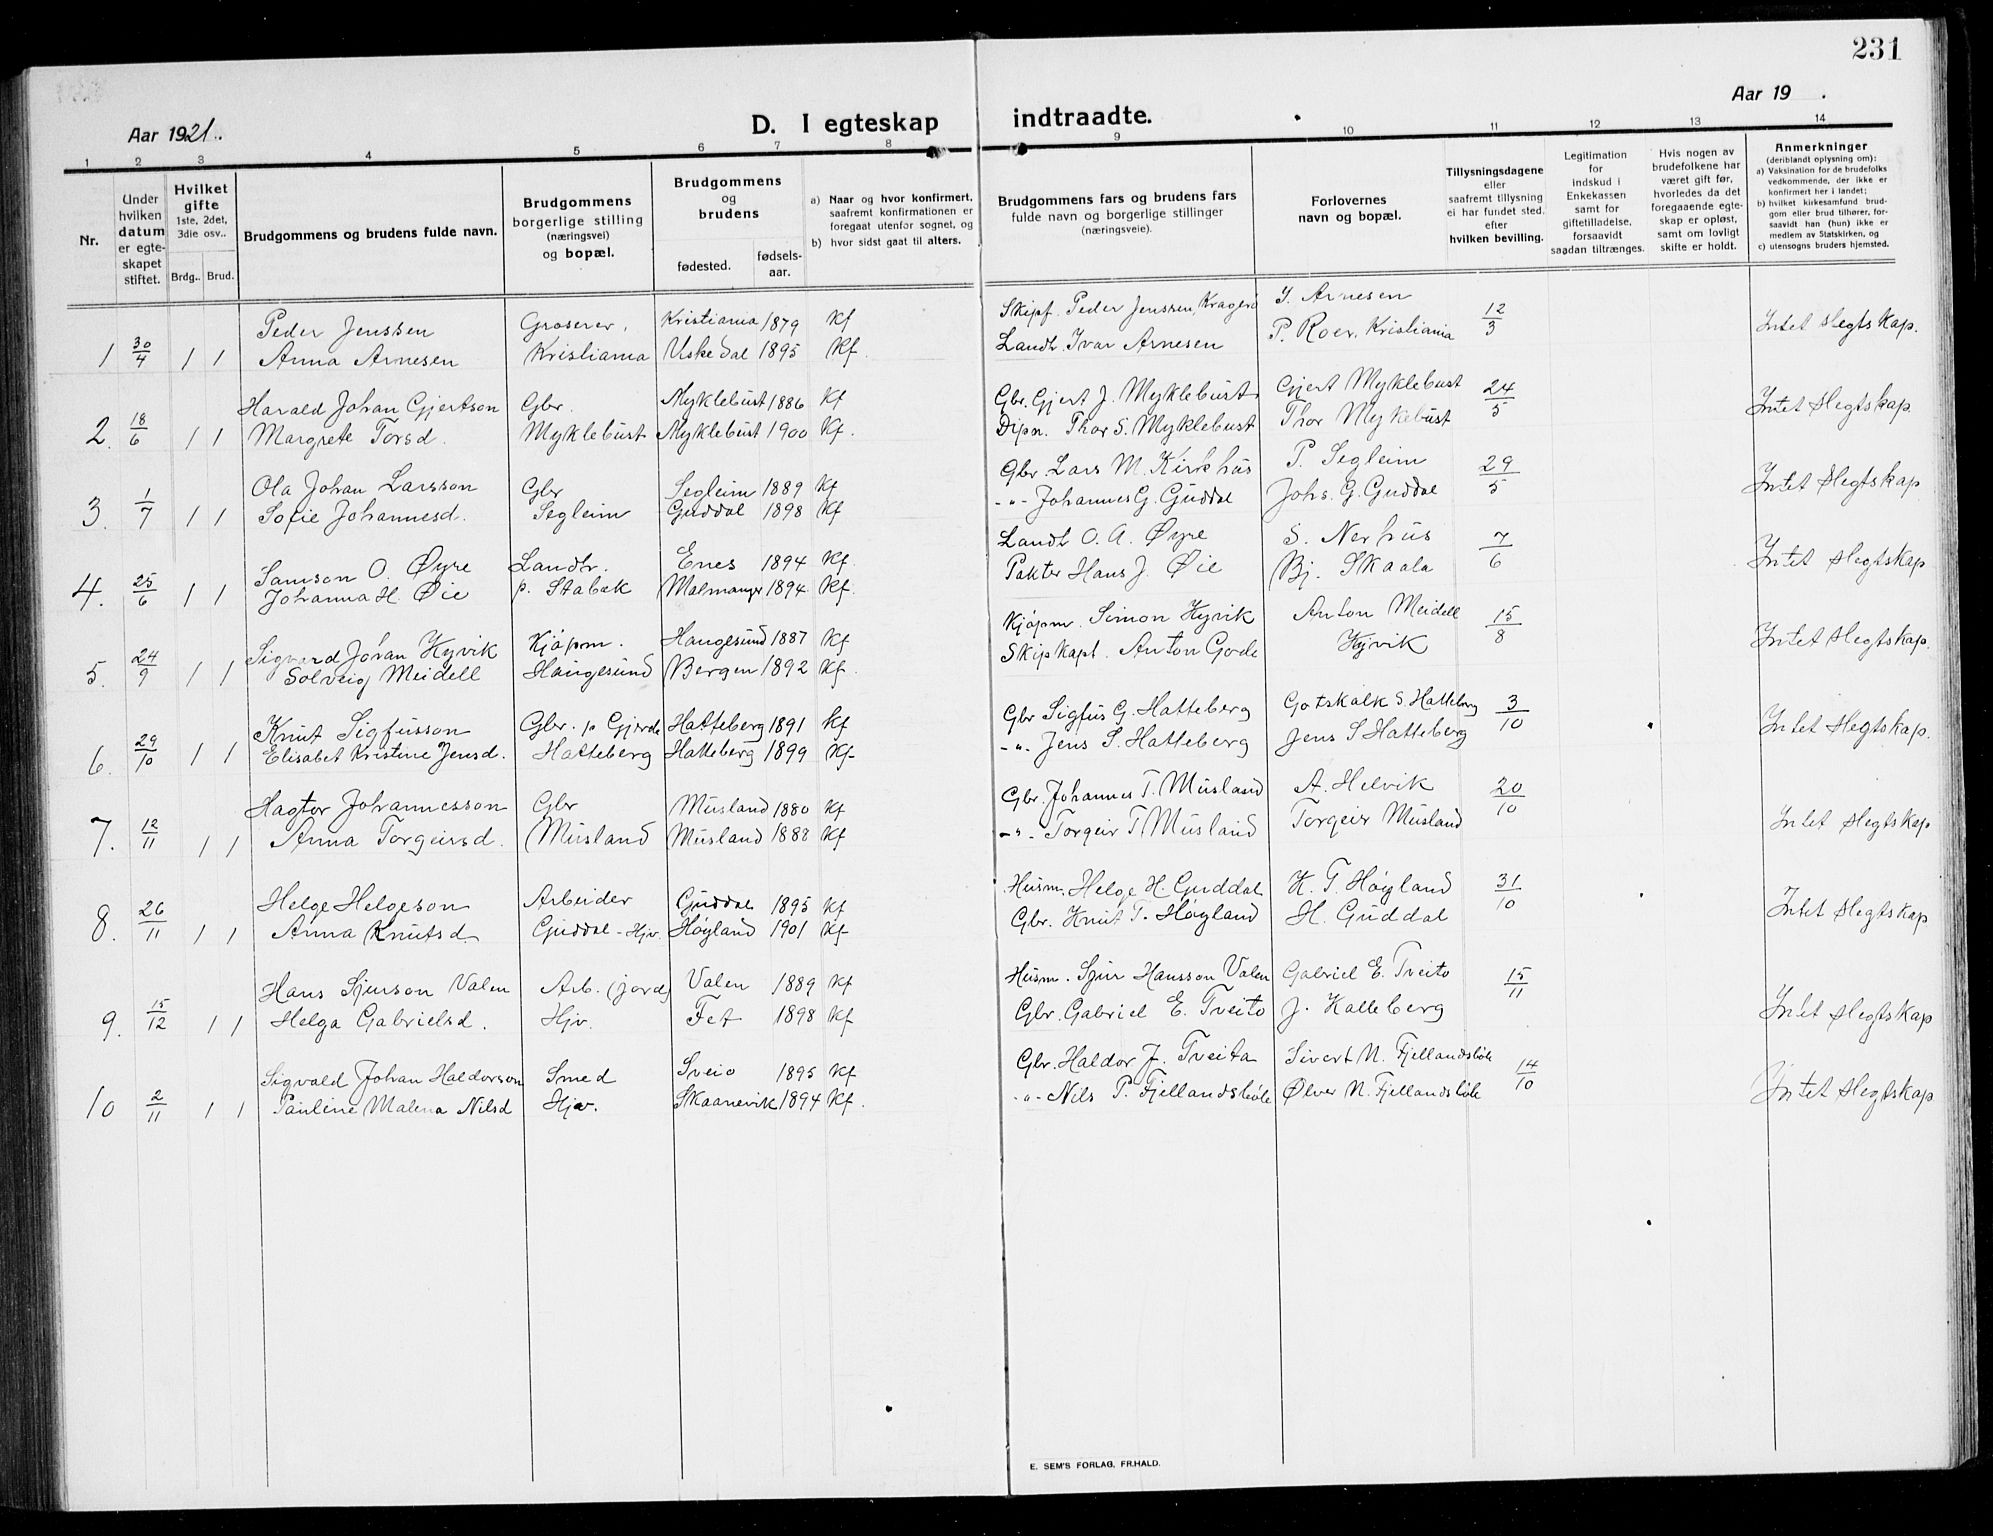 231
Aar 1921.
D. I egteskap indtraadte.
Aar 19 .
1 2 3 4 5 6 7 8 9 10 11 12 13 14
Nr.
Under hvilken datum er egteskapet stiftet.
Hvilket gifte 1ste, 2det, 3die osv..
Brdg.. Brud.
Brudgommens og brudens fulde navn.
Brudgommens borgerlige stilling (næringsvei) og bopæl.
Brudgommens og brudens
fødested.
fødselsaar.
a) Naar og hvor konfirmert, saafremt konfirmationen er foregaat utenfor sognet, og
b) hvor sidst gaat til alters.
Brudgommens fars og brudens fars fulde navn og borgerlige stillinger (næringsveie).
Forlovernes navn og bopæl.
Tillysningsdagene eller saafremt tillysning ei har fundet sted. efter hvilken bevilling.
Legitimation for indskud i Enkekassen samt for giftetilladelse, forsaavidt saadan tiltrænges.
Hvis nogen av brudefolkene har været gift før, hvorledes da det foregaaende egteskap er opløst, samt om lovligt skifte er holdt.
Anmerkninger (deriblandt oplysning om):
a) Vaksination for de brudefolks vedkommende, der ikke er konfirmert her i landet;
b) hvilket kirkesamfund brudgom eller brud tilhører, forsaavidt han (hun) ikke er medlem av Statskirken, og
c) utensogns bruders hjemsted.
Peder Jenssen Groserer, Kristiania 1879 Kf Skipf. Peder Jenssen, Kragerø I. Arnesen 12/3 Intet slegtskap.
1 30/4 1 1 Anna Arnesen Kristiania Uskedal 1895 Kf. Landh. Ivar Arnesen P. Roer, Kristiania
Harald Johan Gjertson Gbr. Myklebust 1886 Kf Gbr. Gjert J. Myklebust Gjert Myklebust 24/5 Intet slegtskap.
2. 18/6 1 1 Margrete Torsd. Myklebust Myklebust 1900 Kf. Dipn. Thor S. Myklebust Thor Myklebust
Ola Johan Larsson Gbr Segleim 1889 Kf Gbr. Lars M. Kirkhus P. Segleim 29/5 Intet slegtskap
3. 1/7 1 1 Sofie Johannesd. Segleim Guddal 1898 Kf -"- Johannes G. Guddal Johs. G. Guddal
Samson O. Øyre Landbr. Enes 1894 Kf. Landh O. A. Øyre S. Nerhus 7/6 Intet slegtskap
4. 25/6 1 1 Johanna H. Øie p. Stabæk Malmanger 1894 Kf. Pakter Hans J. Øie Bj. Skaala
Sigvard Johan Hyvik Kjøpm. Haugesund 1887 Kf Kjøpm. Simon Hyvik Anton Meidell 15/8 Intet slegtskap.
5. 24/9 1 1 Solveig Meidell Haugesund Bergen 1892 Kf. Skipskapt. Anton Gode Hyvik
Knut Sigfusson Gbr. p Gjerde Hatteberg 1891 Kf Gbr Sigfus G. Hatteberg Gotskalk S. Hatteberg 3/10 Intet slegtskap.
6. 29/10 1 1 Elisabet Kristine Jensd. Hatteberg Hatteberg 1899 Kf -"- Jens S. Hatteberg Jens S Hatteberg
Hagtor Johannesson Gbr Musland 1880 Kf Gbr. Johannes T. Musland A. Helvik 20/10 Intet slegtskap
7. 12/11 1 1 Anna Torgeirsd. Musland Musland 1888 Kf -"- Torgeir T Musland Torgeir Musland
Helge Helgeson Arbeider Guddal 1895 Kf Husm. Helge H. Guddal K. T. Høyland 31/10 Intet slegtskap
8. 26/11 1 1 Anna Knutsd. Guddal - Hjv. Høyland 1901 Kf Gbr. Knut T. Høyland H. Guddal
Hans Sjurson Valen Arb. (jord) Valen 1889 Kf Husm. Sjur Hansson Valen Gabriel E. Tveito 15/11 Intet slegtskap
9. 15/12 1 1 Helga Gabrielsd. Hjv. Fet 1898 Kf Gbr. Gabriel E. Tveito J. Hatteberg
Sigvald Johan Haldorson Smed Sveio 1895 Kf Gbr. Haldor J. Tveita Sivert N. Fjellandsbøle 14/10 Intet slegtskap
10 2/11 1 1 Pauline Malena Nilsd Hjv. Skaanevik 1894 Kf. -"- Nils P. Fjellandsbøle Ølver N. Fjellandsbøle
E. SEM'S FORLAG, FR.HALD.